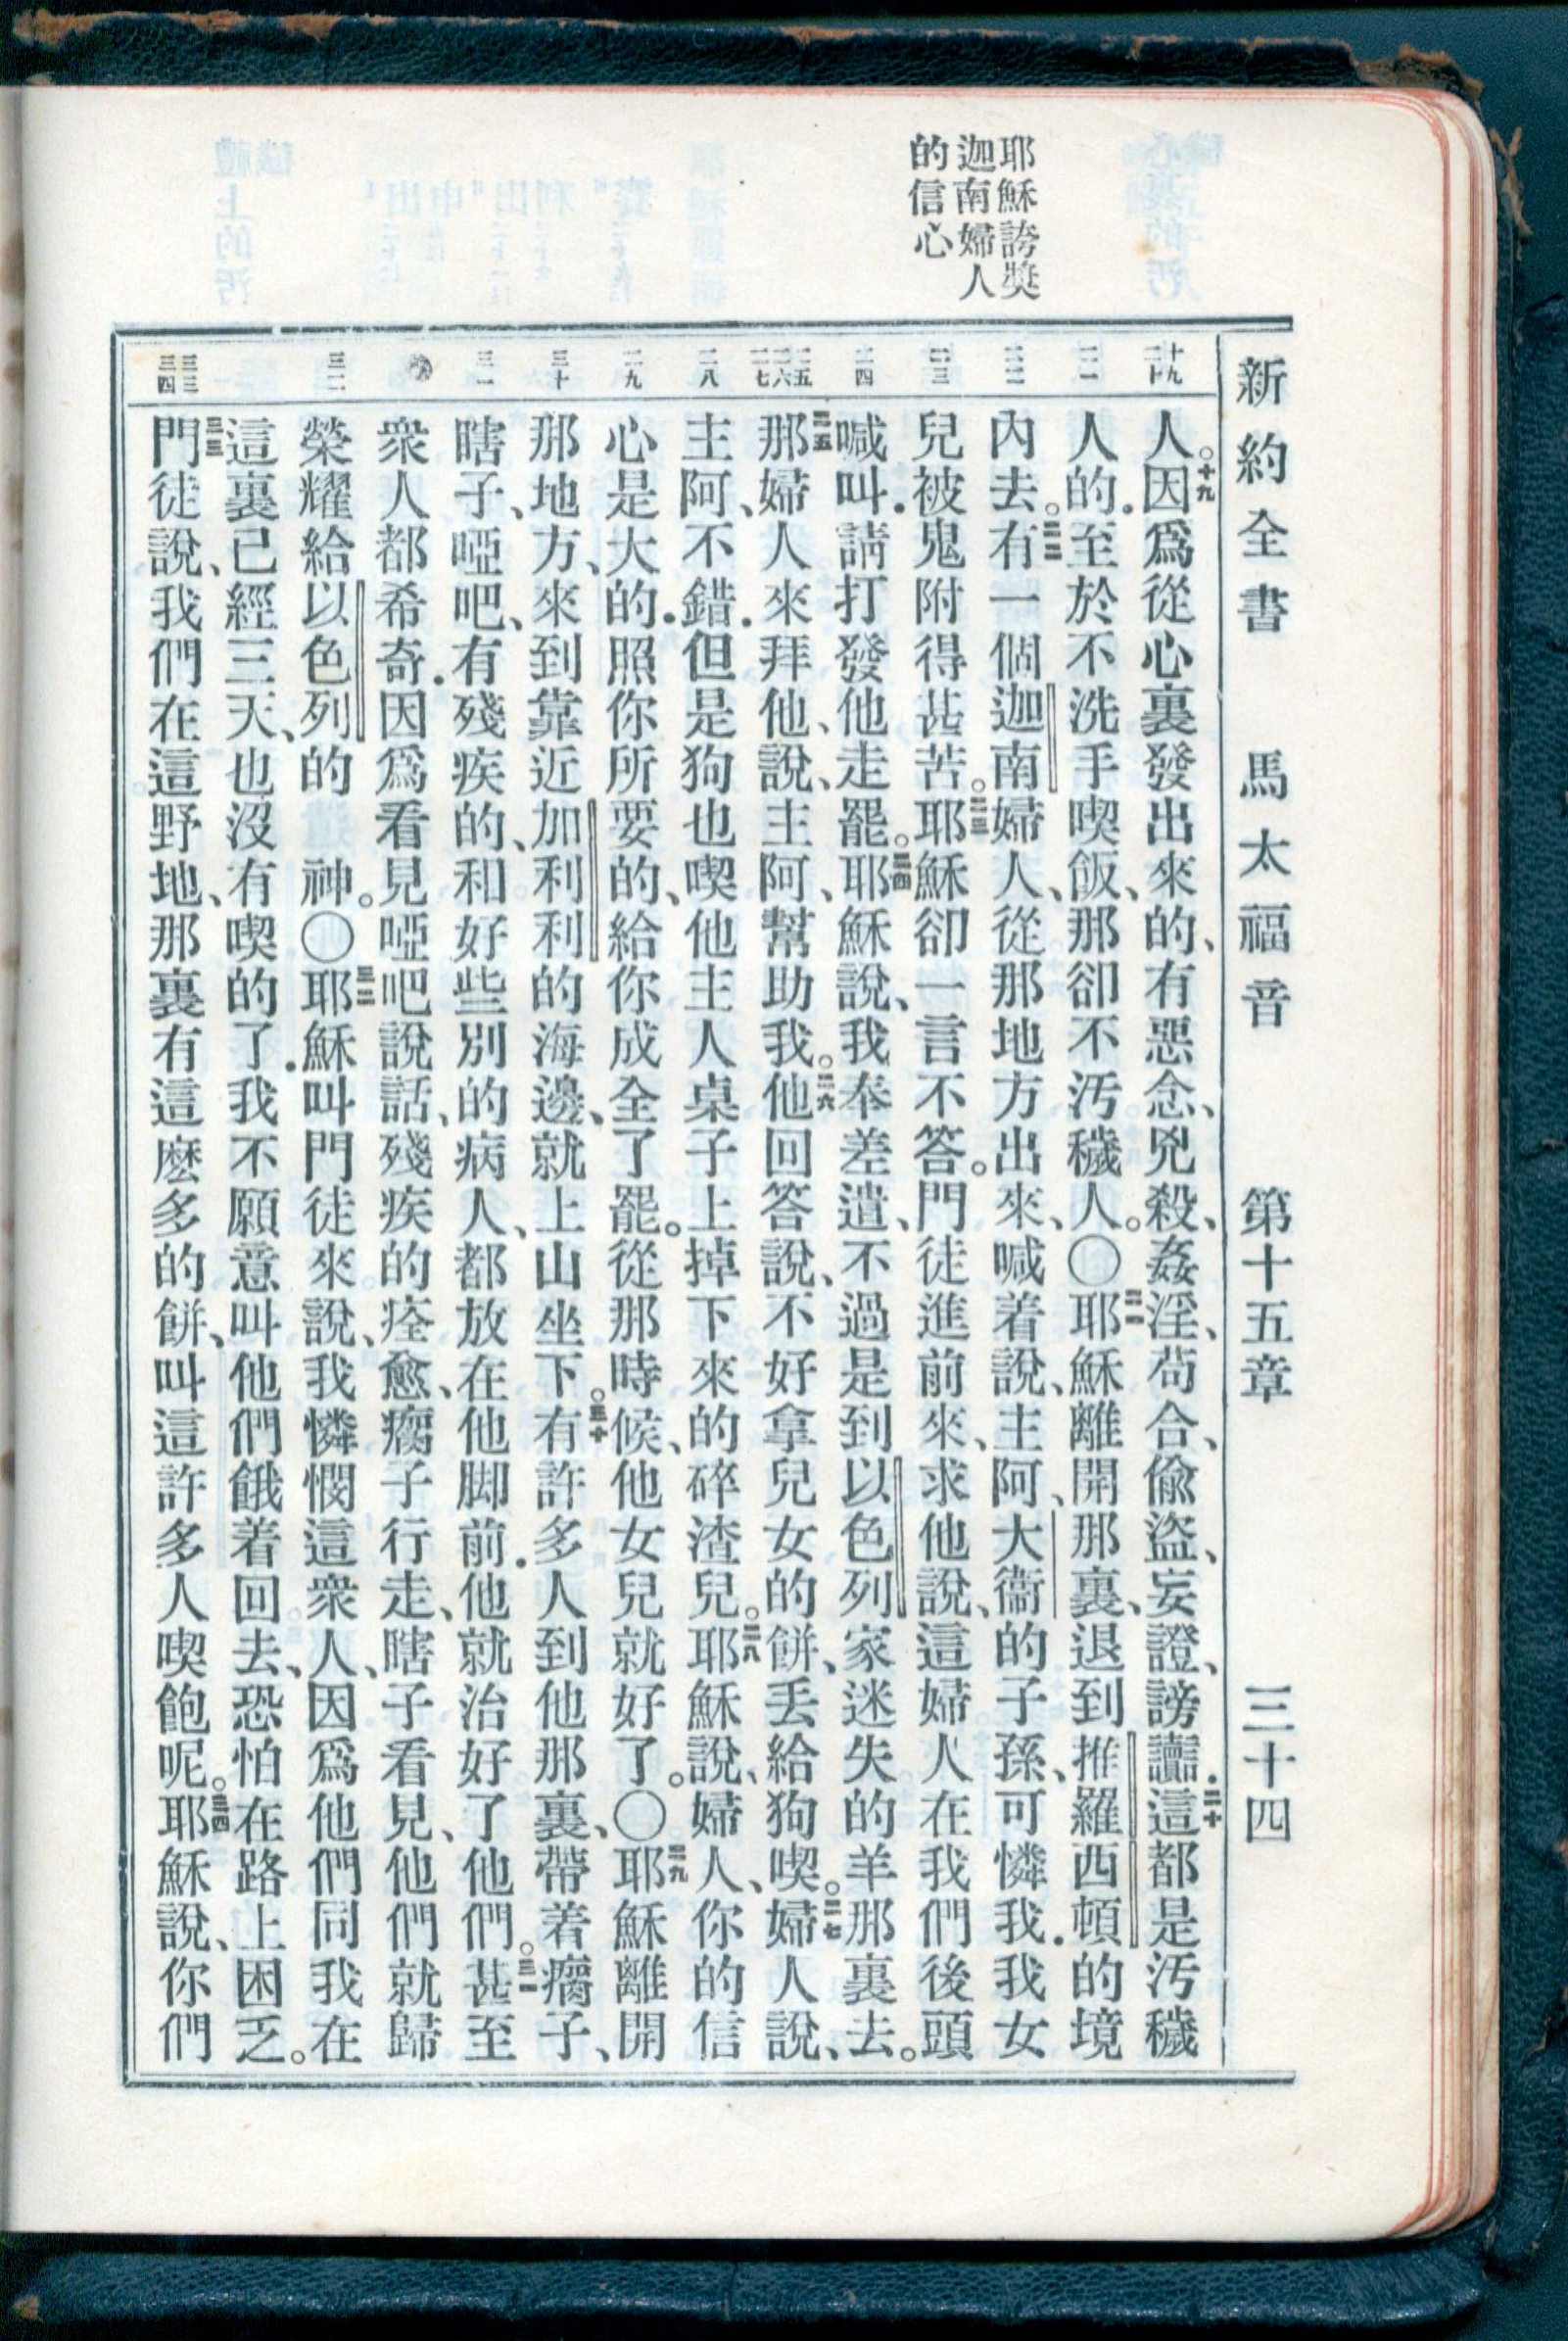 新約全書 馬太福音 第十五章 三十四
耶穌誇獎
迦南婦人
的信心
十九
二十
二一
二二
二三
二四
二五
二六
二七
二八
二九
三十
三一
三二
三三
三四
人。十九因爲從心裏發出來的、有惡念、兇殺、姦淫、苟合、偷盜、妄證、謗讟．二十這都是汚穢
人的．至於不洗手喫飯、那卻不汚穢人。〇二一耶穌離開那裏、退到推羅西頓的境
內去。二二有一個迦南婦人、從那地方出來、喊着說、主阿、大衞的子孫、可憐我．我女
兒被鬼附得甚苦。二三耶穌卻一言不答。門徒進前來、求他說、這婦人在我們後頭
喊叫．請打發他走罷。二四耶穌說、我奉差遣、不過是到以色列家迷失的羊那裏去。
二五那婦人來拜他、說、主阿、幫助我。二六他回答說、不好拿兒女的餅、丟給狗喫。二七婦人說、
主阿、不錯．但是狗也喫他主人桌子上掉下來的碎渣兒。二八耶穌說、婦人、你的信
心是大的．照你所要的、給你成全了罷。從那時候、他女兒就好了。〇二九耶穌離開
那地方、來到靠近加利利的海邊、就上山坐下。三十有許多人到他那裏、帶着瘸子、
瞎子、啞吧、有殘疾的、和好些別的病人、都放在他脚前．他就治好了他們。三一甚至
衆人都希奇．因爲看見啞吧說話、殘疾的痊愈、瘸子行走、瞎子看見、他們就歸
榮耀給以色列的 神。〇三二耶穌叫門徒來說、我憐憫這衆人、因爲他們同我在
這裏已經三天、也沒有喫的了．我不願意叫他們餓着回去、恐怕在路上困乏。
三三門徒說、我們在這野地、那裏有這麽多的餅、叫這許多人喫飽呢。三四耶穌說、你們